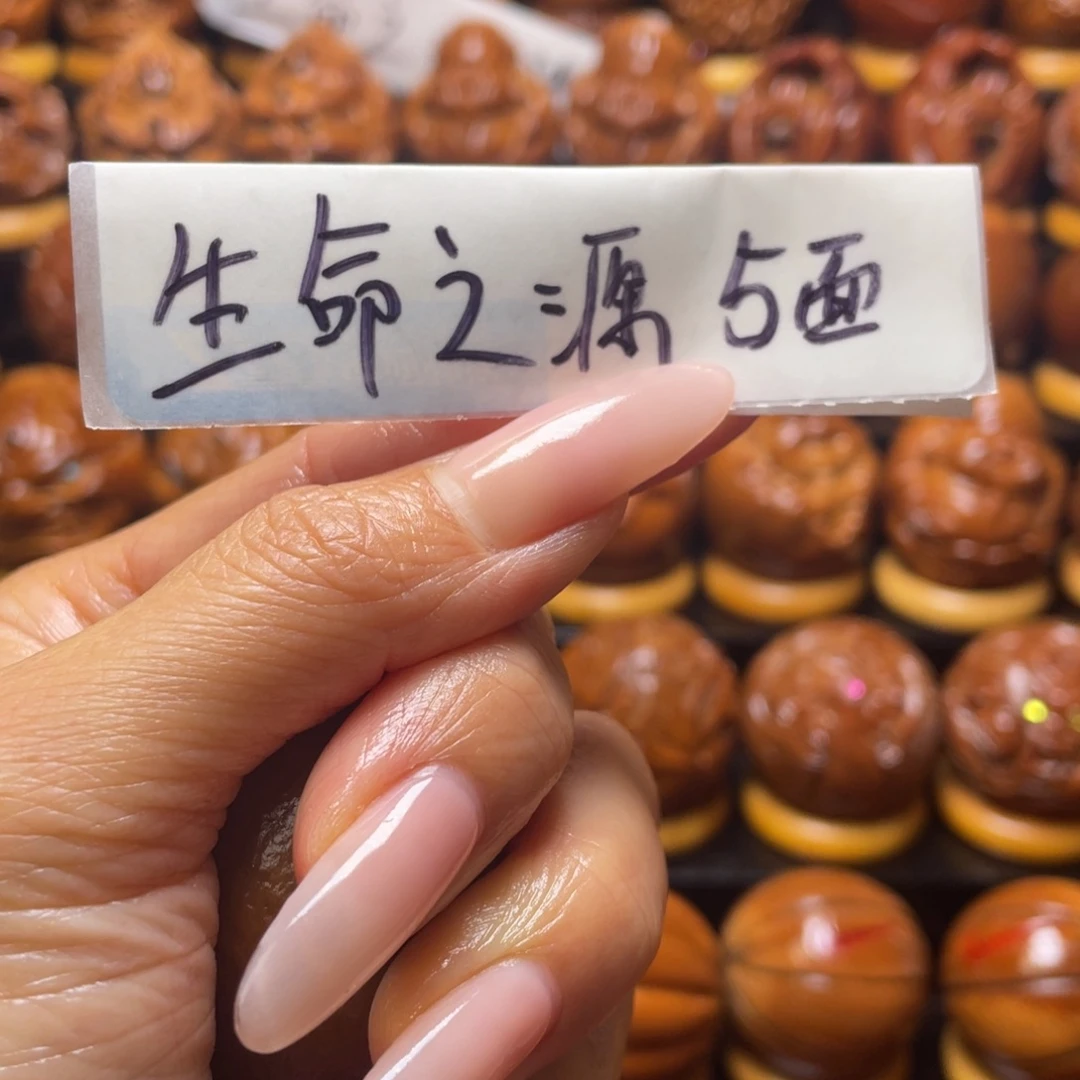 生命之源 5面